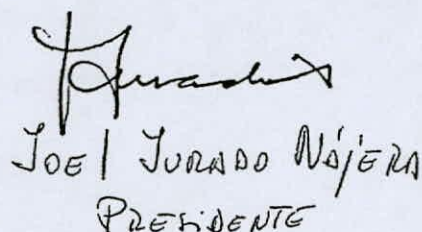 JOEL JURADO NÁJERA
PRESIDENTE